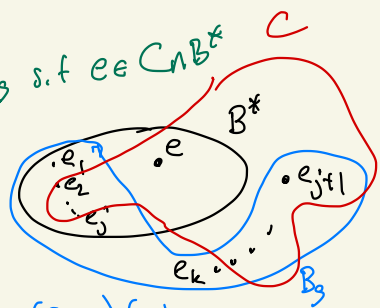 C
s.t e ∈ C∩B*
B*
e
e₁
e₂
eⱼ
eⱼ₊₁
eₖ
B₃